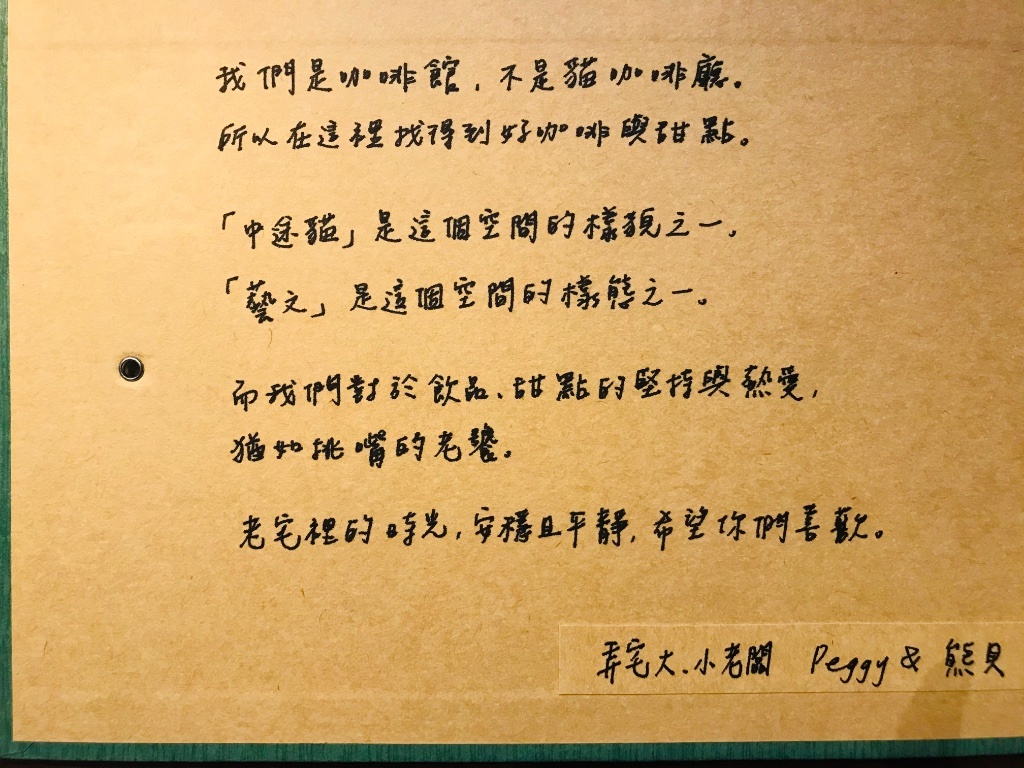 我們是咖啡館，不是貓咖啡廳。
所以在這裡找得到好咖啡與甜點。
「中途貓」是這個空間的樣貌之一。
「藝文」是這個空間的樣態之一。
而我們對於飲品、甜點的堅持與熱愛，
猶如挑嘴的老饕。
老宅裡的時光，安穩且平靜，希望你們喜歡。
弄宅大、小老闆 Peggy & 熊貝